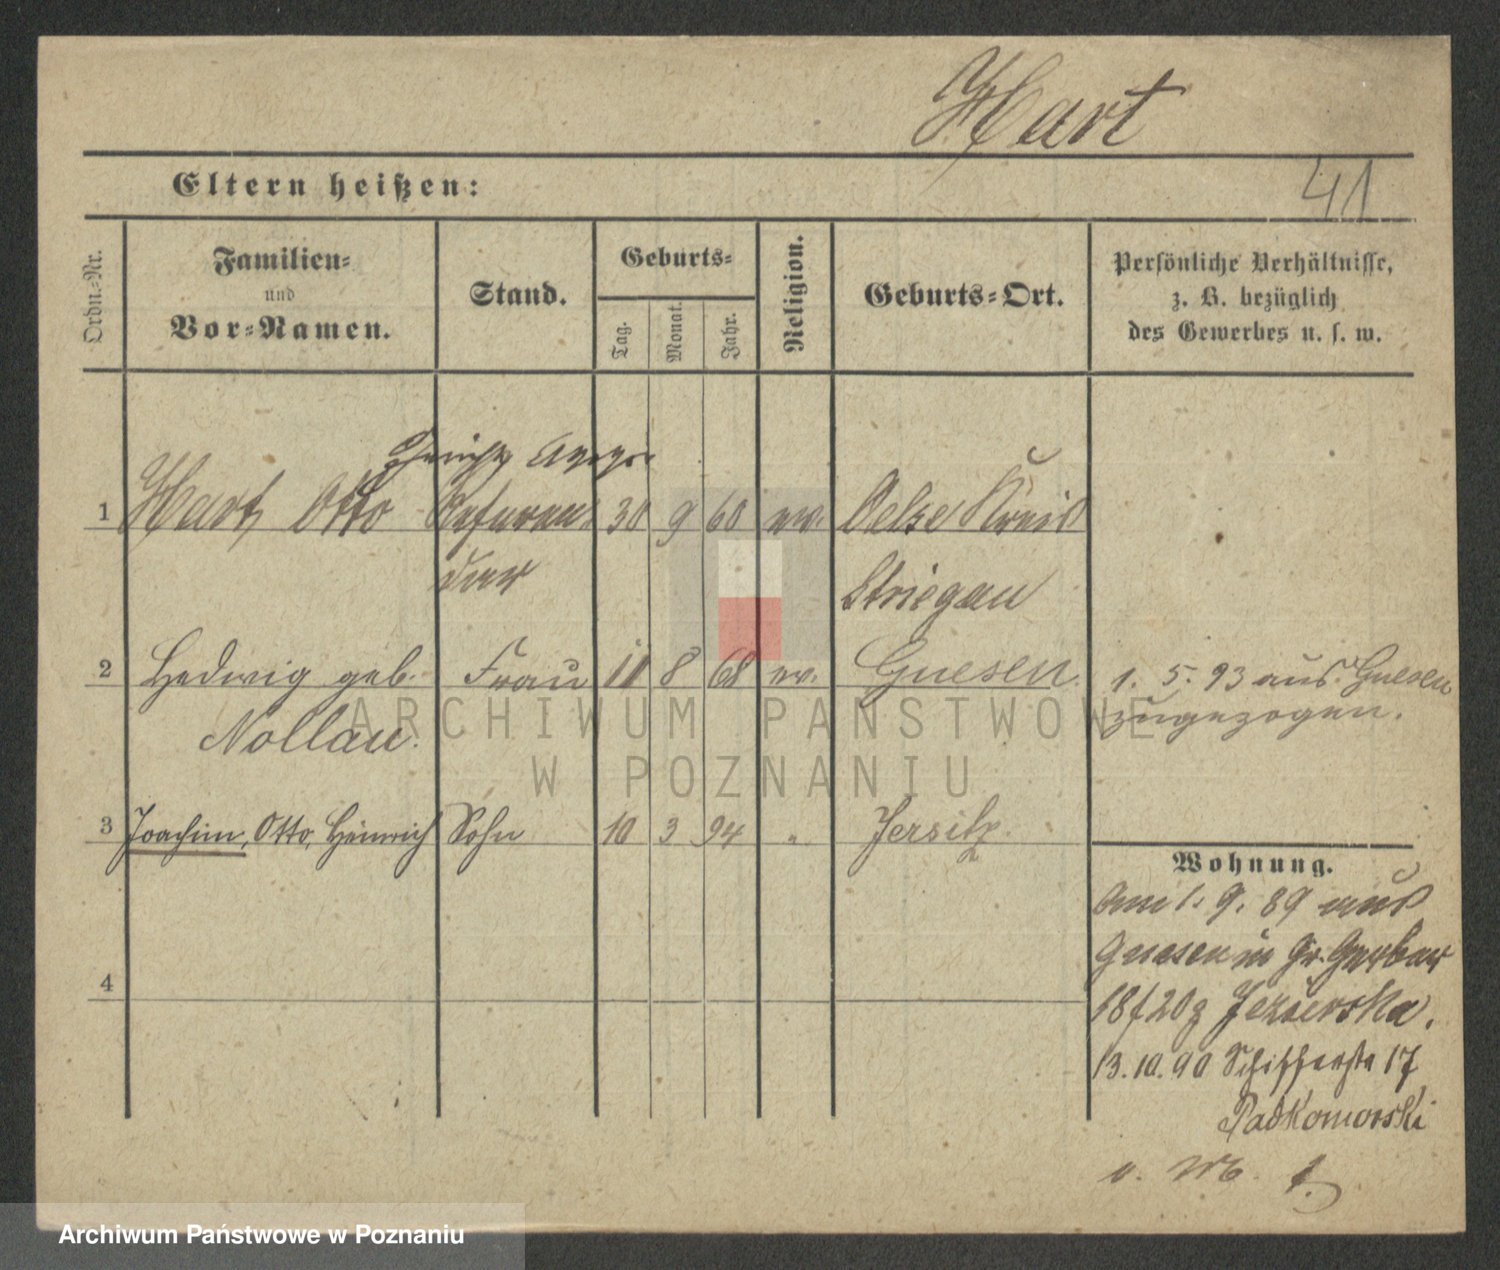 Hart
41
Eltern heißen:
Ordn.-Nr.
Familien-
und
Vor-Namen.
Stand.
Geburts-
Tag.
Monat.
Jahr.
Religion.
Geburts-Ort.
Persönliche Verhältnisse,
z. B. bezüglich
des Gewerbes u. s. w.
1 Hart Otto Referen- 30 9 60 ev. Oelse Kreis
dar Striegau
2 Hedwig geb. Frau 11 8 68 ev. Gnesen.
Nollau.
1. 5. 93 aus Gnesen
zugezogen.
3 Joachim, Otto, Heinrich Sohn 10 3 94 " Jersitz.
4
Wohnung.
Am 1. 9. 89 aus
Gnesen in Gr. Gerber
18 f 20 z Jezierska.
13. 10. 90 Schifferstr 17
Padkomorski
ARCHIWUM PAŃSTWOWE
W POZNANIU
Archiwum Państwowe w Poznaniu